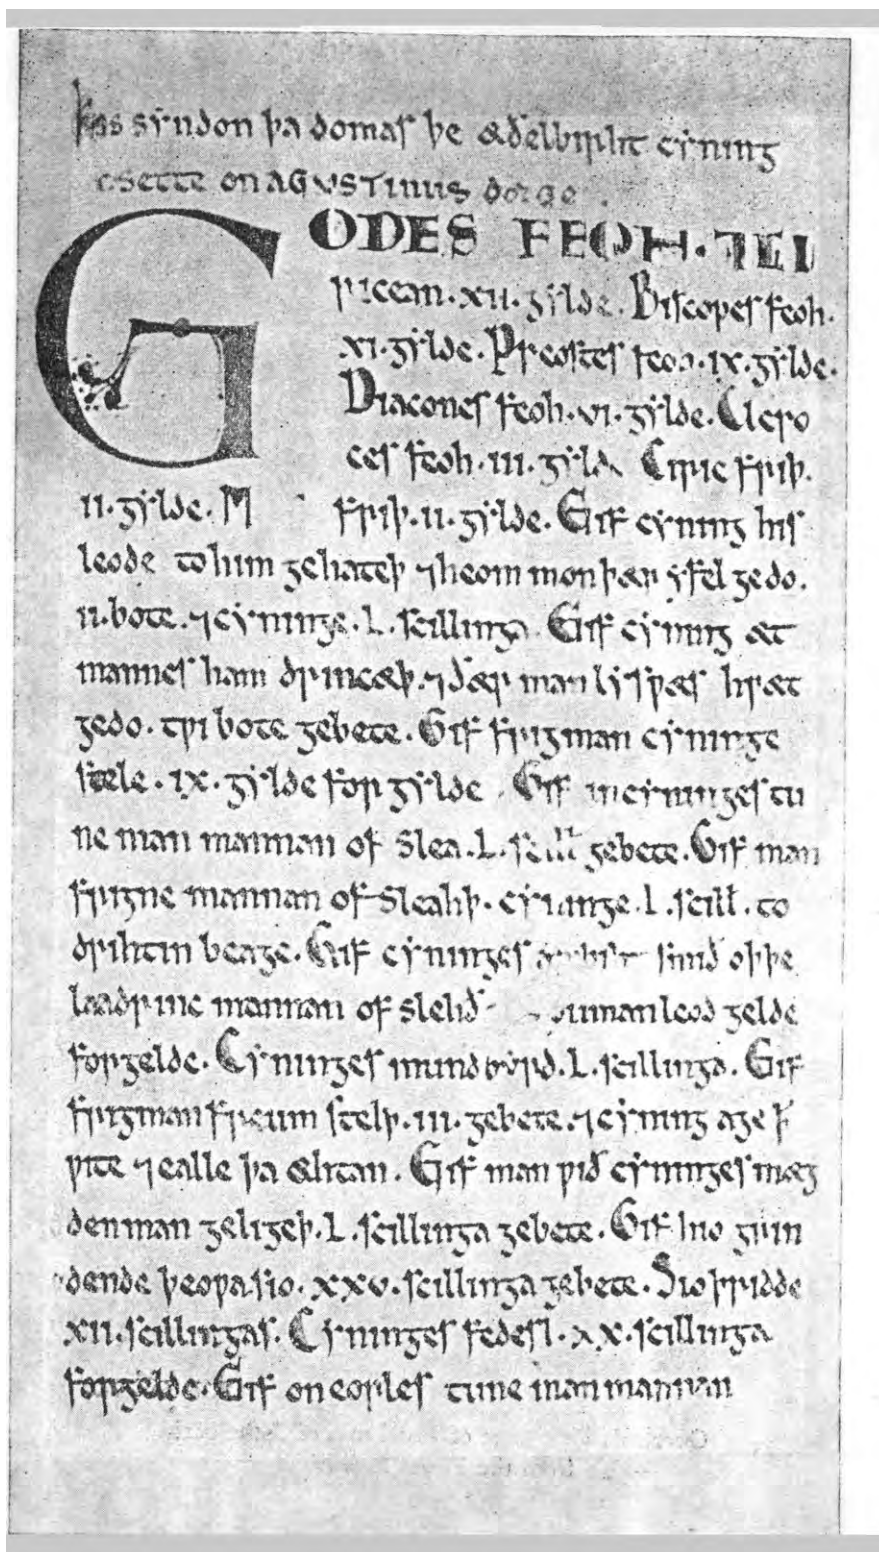 Þas syndon þa domas þe æðelbirht cyning
asette on AGVSTINUS dæge.
GODES FEOH. ⁊ CI
ricean. xii. gylde. Biscopes feoh.
xi. gylde. Preostes feoh. ix. gylde.
Diacones feoh. vi. gylde. Clero
ces feoh. iii. gylde Ciric friþ.
ii. gylde. M friþ. ii. gylde. Gif cyning his
leode to him gehateþ ⁊ heom mon þær yfel gedo.
ii. bote. ⁊ cyninge. L. scillinga. Gif cyning æt
mannes ham drincæþ. ⁊ ðær man lyswæs hwæt
gedo. twi bote gebete. Gif frigman cyninge
stele. ix. gylde forgylde. Gif in cyninges tu
ne man mannan of slea. L. scill gebete. Gif man
frigne mannan of sleahþ. cyninge. L. scill. to
drihtin beage. Gif cyninges ambiht smið oþþe
laadrinc mannan of slehð. duman leod gelde
forgelde. Cyninges mund byrd. L. scillinga. Gif
frigman freum stelþ. iii. gebete. ⁊ cyning age ꝥ
wite ⁊ ealle þa æhtan. Gif man wið cyninges mæg
den man geligeþ. L. scillinga gebete. Gif hio grin
dende þeowa sio. xxv. scillinga gebete. Sio þridde
xii. scillingas. Cyninges fedesl. xx. scillinga
forgelde. Gif on eorles tune man mannan